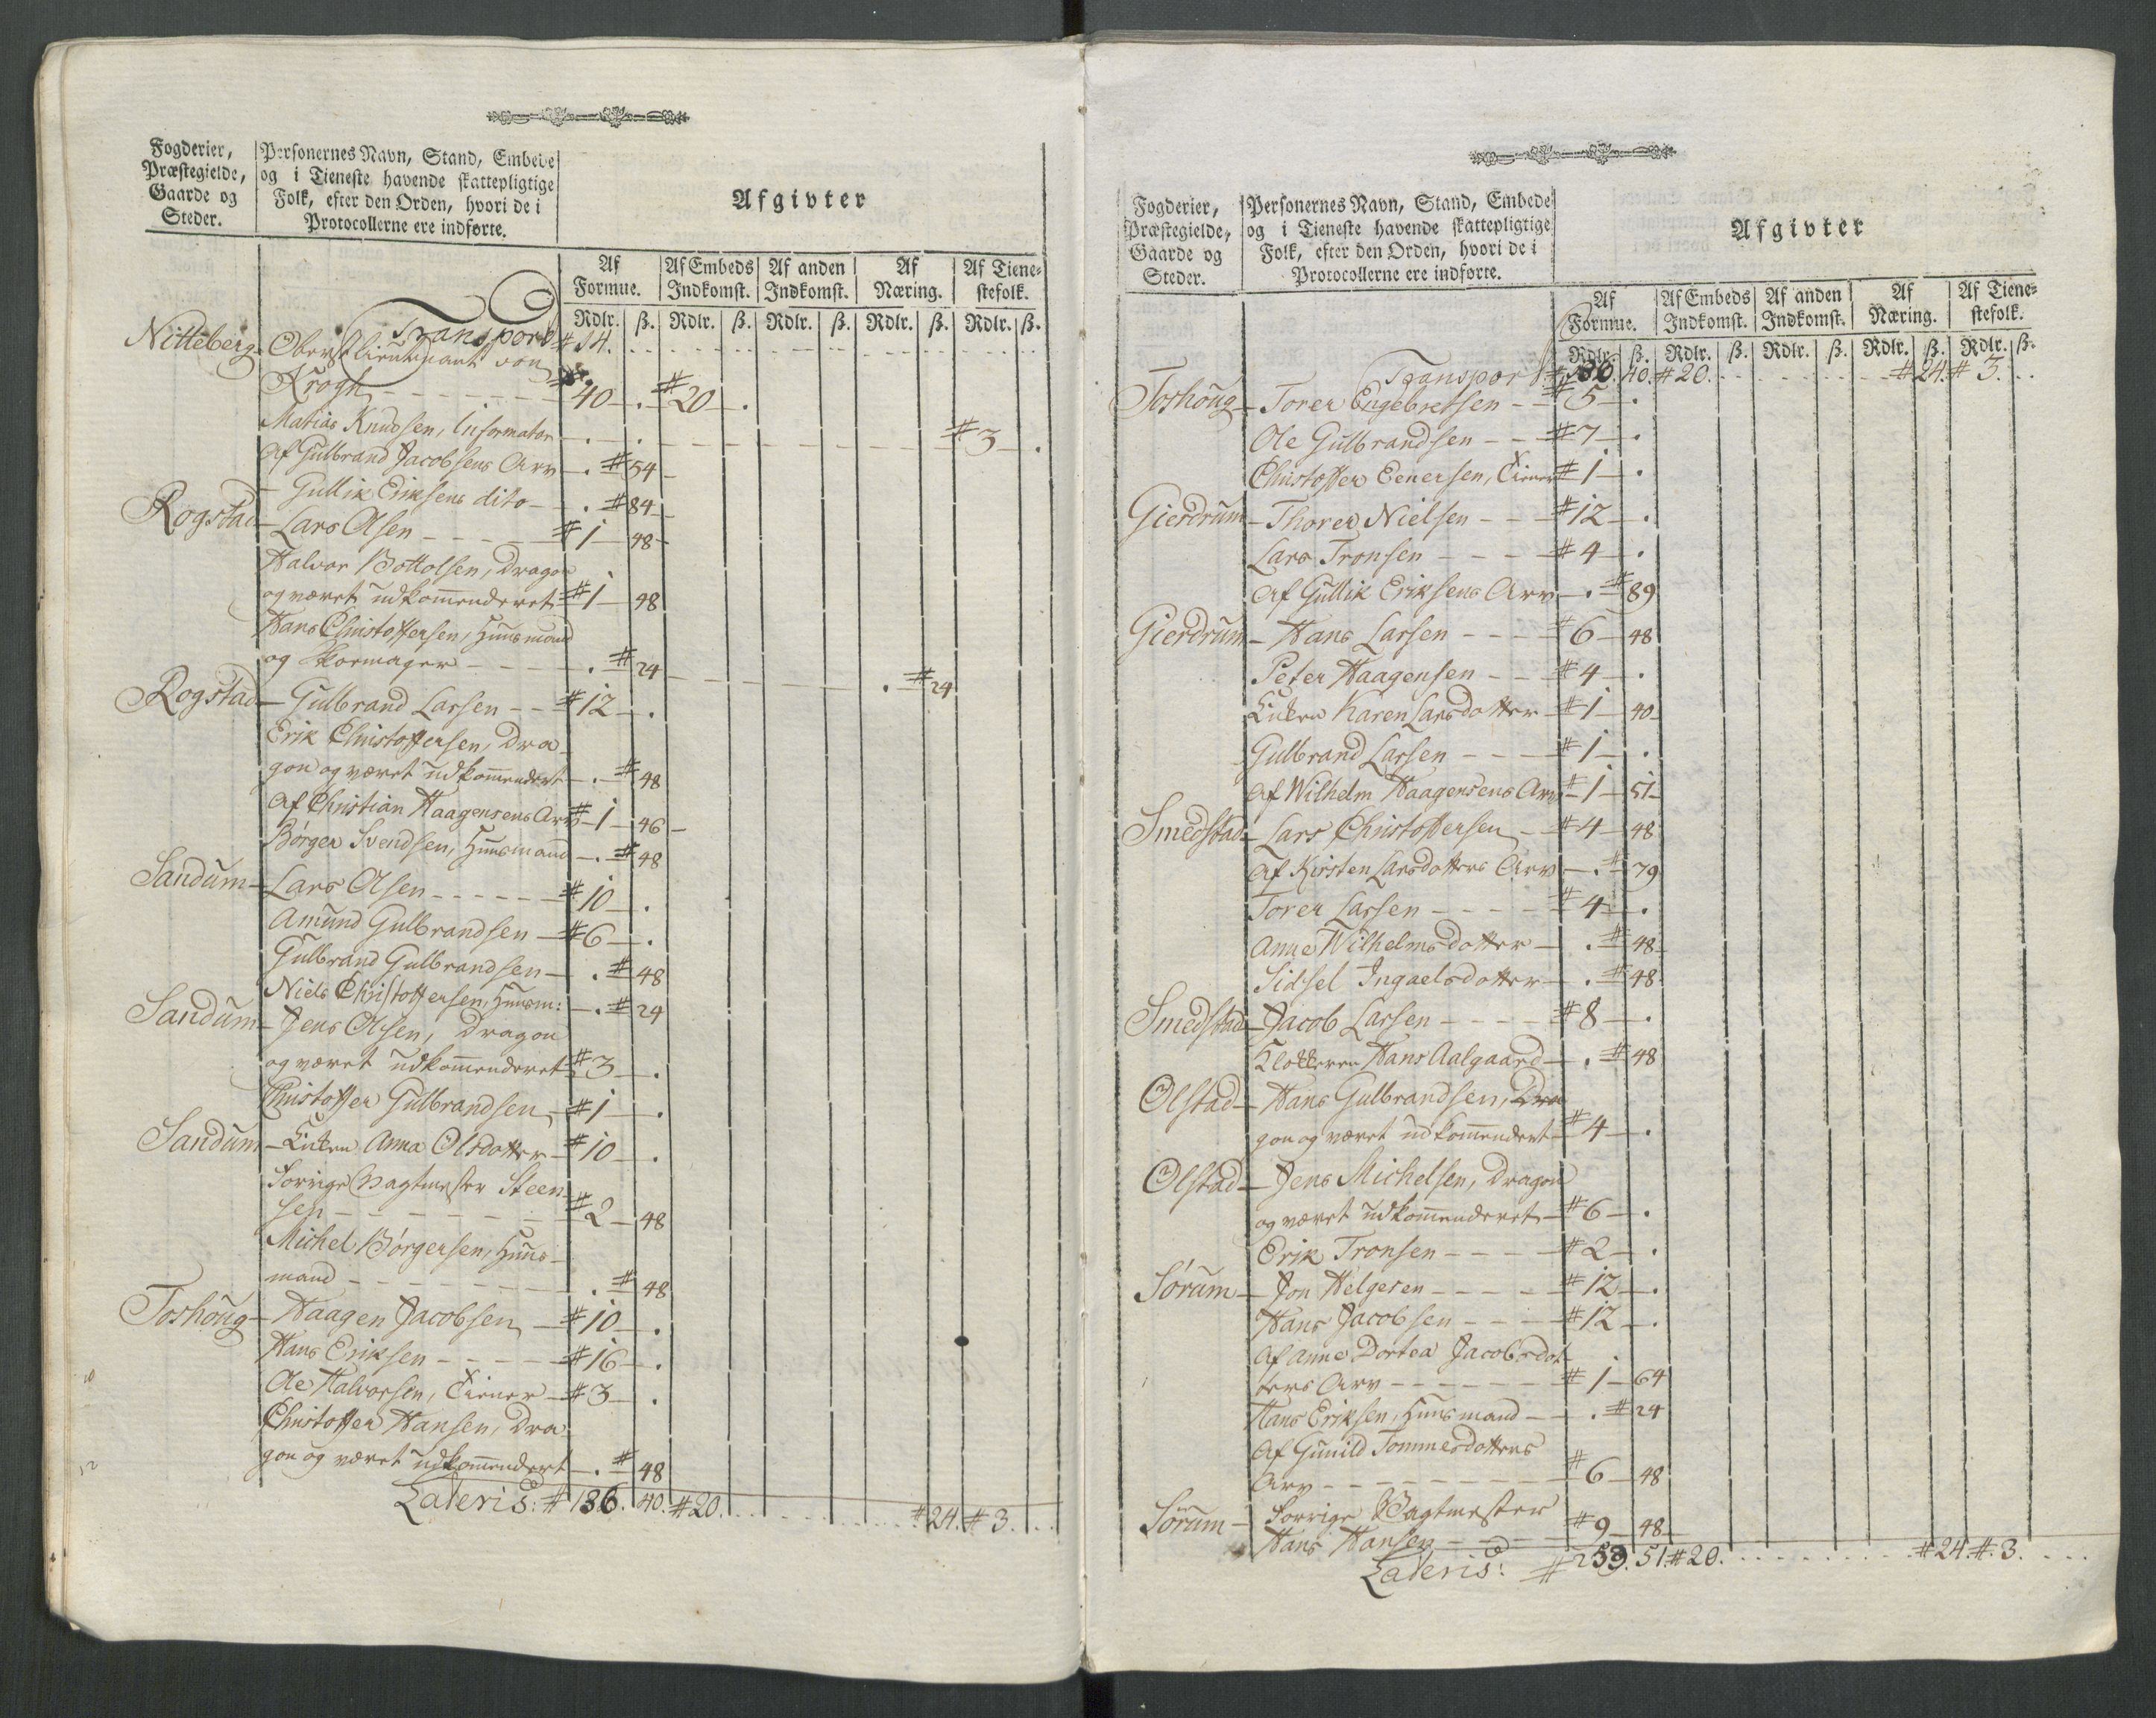 Fogderier,
Præstegielde,
Gaarde og
Steder.
Personernes Navn, Stand, Embede
og i Tieneste havende skattepligtige
Folk, efter den Orden, hvori de i
Protocollerne ere indførte.
Afgivter
Af Formue. Af Embeds Indkomst. Af anden Indkomst. Af Næring. Af Tienestefolk.
Rdlr. ß. Rdlr. ß. Rdlr. ß. Rdlr. ß. Rdlr. ß.
Transport # 14.
Nitteberg - Oberstlieutenant von
Krogh - - - # 40 - . # 20 - .
Matias Knudsen, Informator - . - . - - - # 3 - .
Af Gulbrand Jacobsens Arv - . # 54 -
- Gullik Eriksens dito - . # 84 -
Rogstad - Lars Olsen - - - # 1 - 48 -
Halvor Bottolsen, Dragon
og været udkom̅enderet # 1 - 48
Hans Christoffersen, Huusmand
og Skomager - - - . # 24 - - - . # 24
Rogstad - Gulbrand Larsen - - # 12 - .
Erik Christoffersen, Dra-
gon og været udkom̅endert - . - # 48
Af Christian Haagensens Arv # 1 - 46 -
Børger Svendsen, Huusmand - . # 48
Sandum - Lars Olsen - - - # 10 - .
Amund Gulbrandsen - # 6 - .
Gulbrand Gulbrandsen - . # 48
Niels Christoffersen, Huusm: - . # 24
Sandum - Jens Olsen, Dragon
og været udkom̅enderet # 3 - .
Christoffer Gulbrandsen - # 1 - .
Sandum - Enken Anna Olsdotter - # 10 - .
Forrige Vagtmester Steen
sen - - - # 2 - 48
Michel Børgersen, Huus-
mand - - - . # 48
Toshoug - Haagen Jacobsen - # 10 - .
Hans Eriksen - - - # 16 - .
Ole Halvorsen, Tiener - # 3 - .
Christoffer Hansen, Dra-
gon og været udkom̅endert - . # 48
Lateris: # 136. 40. # 20. . . . # 24. # 3. . .
Fogderier,
Præstegielde,
Gaarde og
Steder.
Personernes Navn, Stand, Embede
og i Tieneste havende skattepligtige
Folk, efter den Orden, hvori de i
Protocollerne ere indførte.
Afgivter
Af Formue. Af Embeds Indkomst. Af anden Indkomst. Af Næring. Af Tienestefolk.
Rdlr. ß. Rdlr. ß. Rdlr. ß. Rdlr. ß. Rdlr. ß.
Transport # 136. 40. # 20. . . . # 24. # 3. . .
Toshoug - Torer Engebretsen - - # 5 - .
Ole Gulbrandsen - - # 7 - .
Christoffer Eenersen, Tiener # 1 - .
Gierdrum - Thorer Nielsen - - # 12 - .
Lars Tronsen - - - # 4 - .
Af Gullik Eriksens Arv - . # 89
Gierdrum - Hans Larsen - - - # 6 - 48
Peter Haagensen - - # 4 - .
Enken Karen Larsdotter # 1 - 40 -
Gulbrand Larsen - - - # 1 - .
Af Wilhelm Haagensens Arv # 1 - 51 -
Smedstad - Lars Christoffersen - # 4 - 48
Af Kirsten Larsdotters Arv - . # 79
Torer Larsen - - - # 4 - .
Anne Wilhelmsdotter - . # 48 -
Sidsel Ingaelsdotter - . # 48
Smedstad - Jacob Larsen - - - # 8 - .
Klokkeren Hans Aalgaard - . # 48
Olstad - Hans Gulbrandsen, Dra
gon og været udkom̅endert # 4 - .
Olstad - Jens Michelsen, Dragon
og været udkom̅enderet - # 6 - .
Erik Tronsen - - - # 2 - .
Sørum - Jon Helgesen - - - # 12 - .
Hans Jacobsen - - - # 12 - .
Af Anne Dortea Jacobsdot-
ters Arv - - - # 1 - 64
Hans Eriksen, Huusmand - - . # 24
Af Gunild Tommesdotters
Arv - - - # 6 - 48
Sørum - Forrige Vagtmester
Hans Hansen - - - # 9 - 48 -
Lateris: # 253. 51. # 20. . . . # 24. # 3. . . .